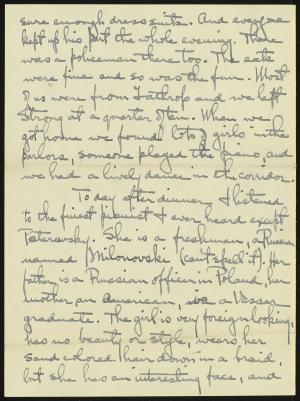 sure enough dress suits. And everyone
kept up his part the whole evening. There
was a policeman there too. The eats
were fine and so was the fun. Most
of us were from Lathrop and we left
Strong at a quarter of ten. When we
got home we found lots of girls in the
parlors, someone played the piano, and
we had a lively dance in the corridor.
Today after dinner, I listened
to the finest pianist I ever heard except
Paterevsky. She is a freshman, a Russian
named Milonovski (can't spell it). Her
father is a Russian officer in Poland, her
mother an American, a Vassar
graduate. The girl is very foreign looking,
has no beauty or style, wears her
sand colored hair down in a braid,
but she has an interesting face, and